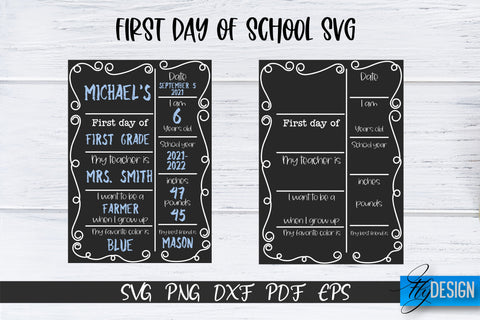 FIRST DAY OF SCHOOL SVG
MICHAEL'S
First day of
FIRST GRADE
My teacher is
MRS. SMITH
I want to be a
FARMER
when I grow up
My favorite color is
BLUE
Date
SEPTEMBER 5
2021
I am
6
Years old
School year
2021-
2022
inches
47
pounds
45
My best friend is
MASON
First day of
My teacher is
I want to be a
when I grow up
My favorite color is
Date
I am
Years old
School year
inches
pounds
My best friend is
SVG PNG DXF PDF EPS
Fly
DESIGN